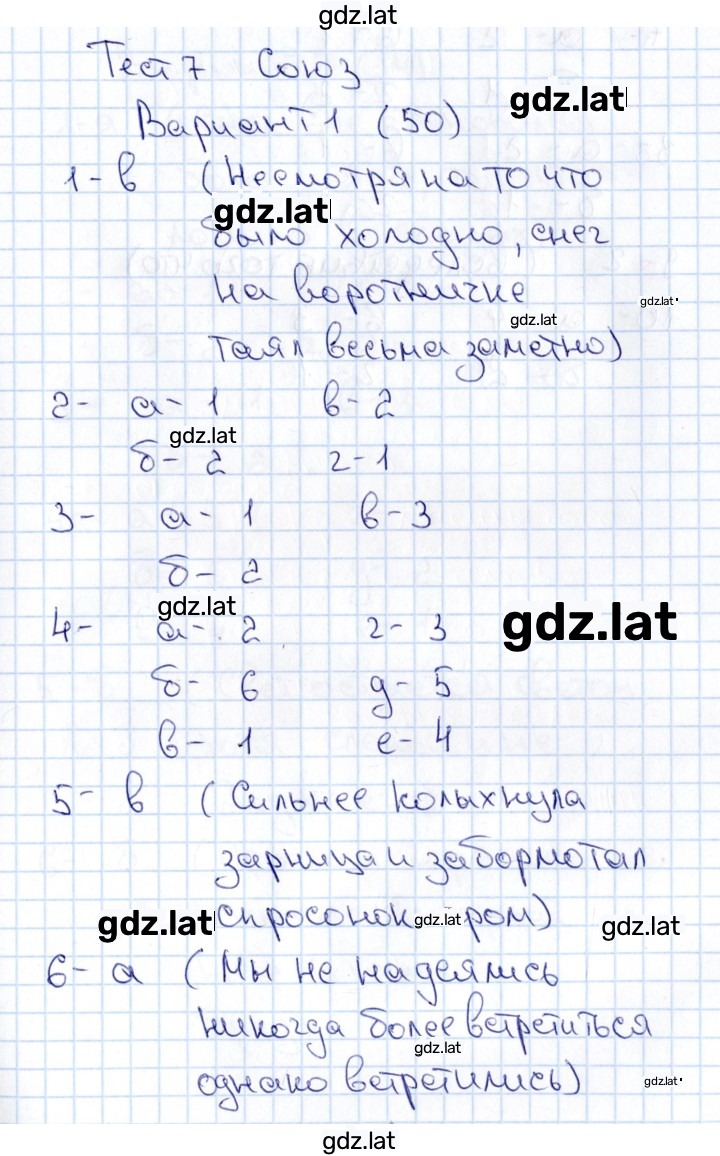 gdz.lat
Тест 7 Союз
gdz.lat
Вариант 1 (50)
1- в (Несмотря на то что
gdz.lat
было холодно, снег
на воротничке
gdz.lat
gdz.lat
таял весьма заметно)
2- а- 1 в- 2
gdz.lat
б- 2 г-1
3- а- 1 в-3
б- 2
gdz.lat
gdz.lat
4- а- 2 г- 3
б- 6 д- 5
в- 1 е- 4
5- в (Сильнее колыхнула
зарница и забормотал
gdz.lat
спросонок gdz.lat ром)
gdz.lat
6- а (Мы не надеялись
никогда более встретиться
gdz.lat
однако встретились)
gdz.lat
gdz.lat